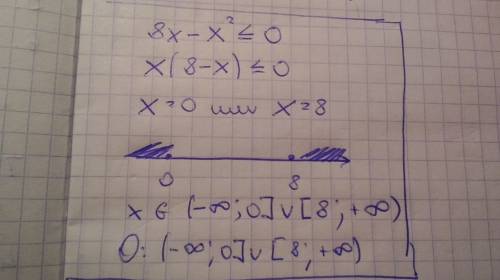 8x-x²≤0
x(8-x)≤0
x=0 или x=8
0 8
x∈(-∞;0]∪[8;+∞)
О: (-∞;0]∪[8;+∞)